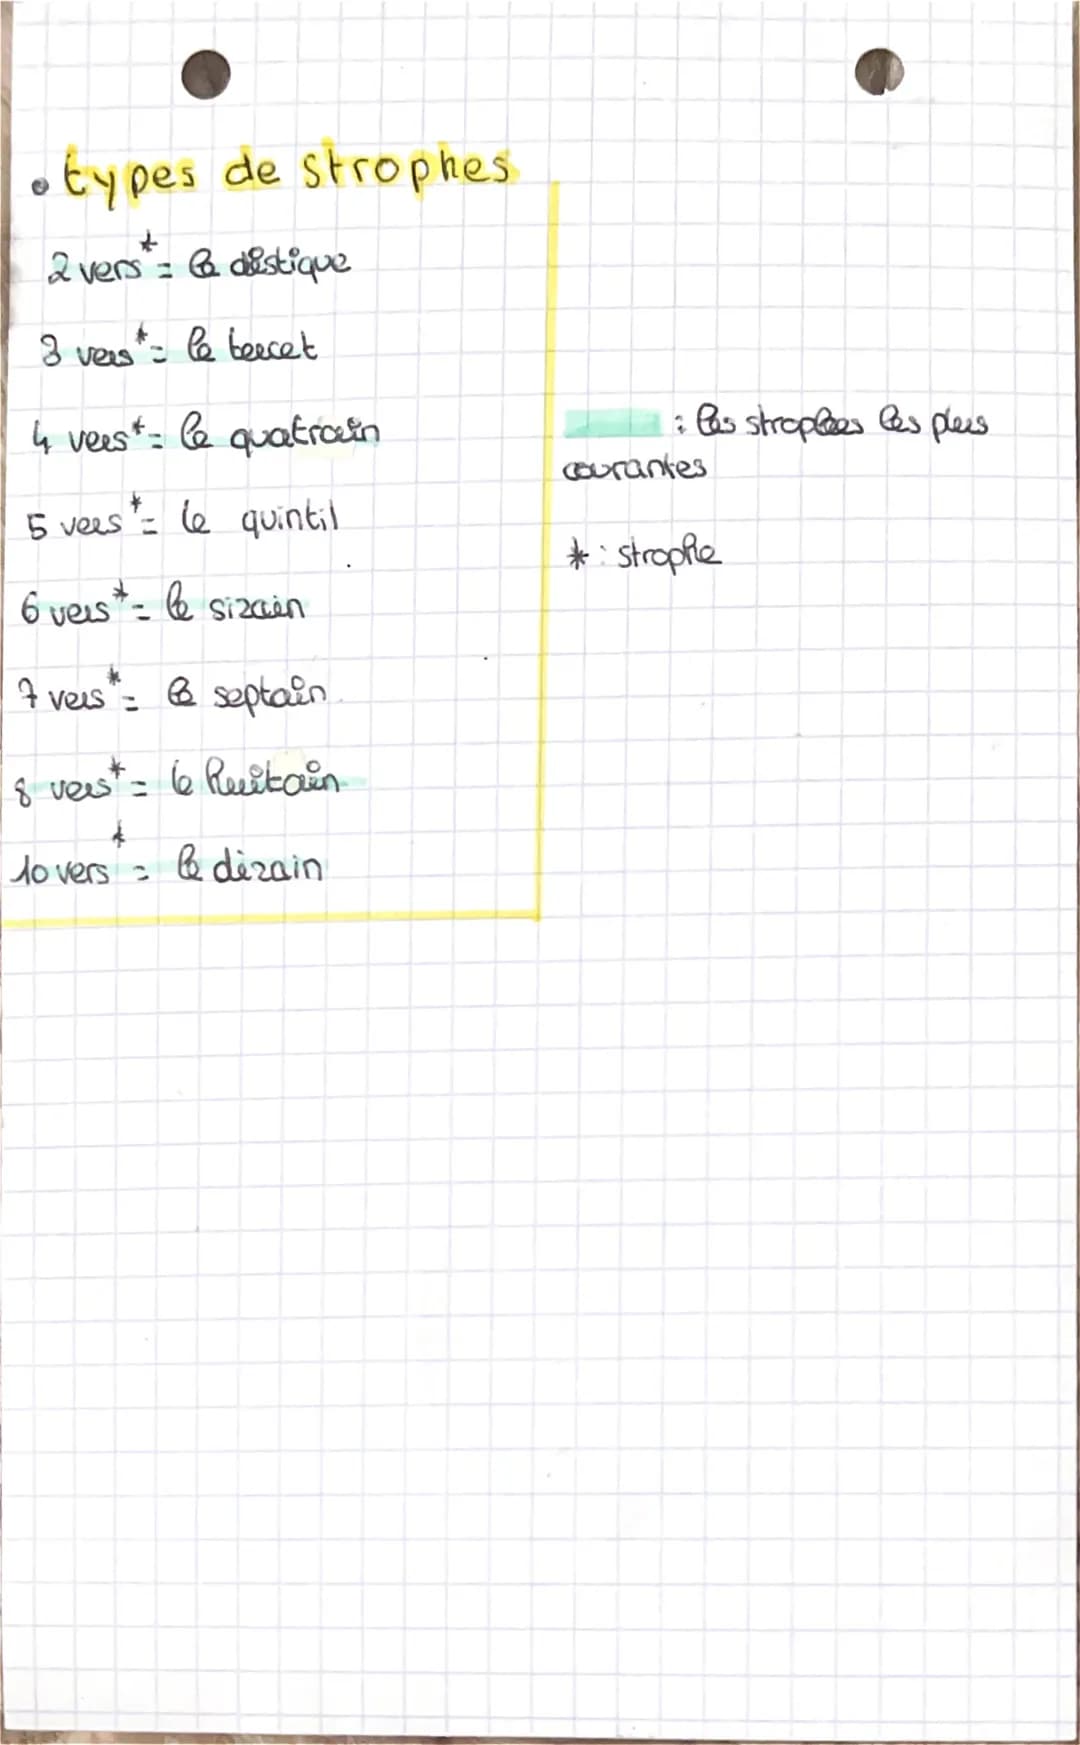 • types de strophes
2 vers* = le distique
3 vers* = le tercet
4 vers* = le quatrain
5 vers* = le quintil
6 vers* = le sizain
7 vers* = le septain
8 vers* = le huitain
10 vers* = le dizain
: les strophes les plus
courantes
* : strophe